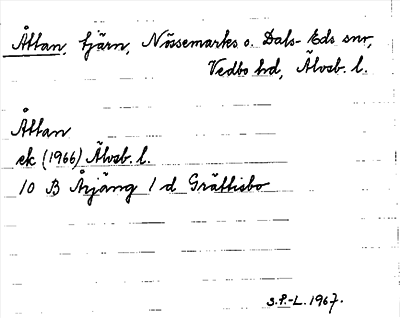 Åttan, tjärn, Nössemarks o. Dals-Eds snr,
Vedbo hd, Älvsb. l.
Åttan
ek (1966) Älvsb. l.
10 B Årjäng 1 d Grättisbo
S.P.-L. 1967.